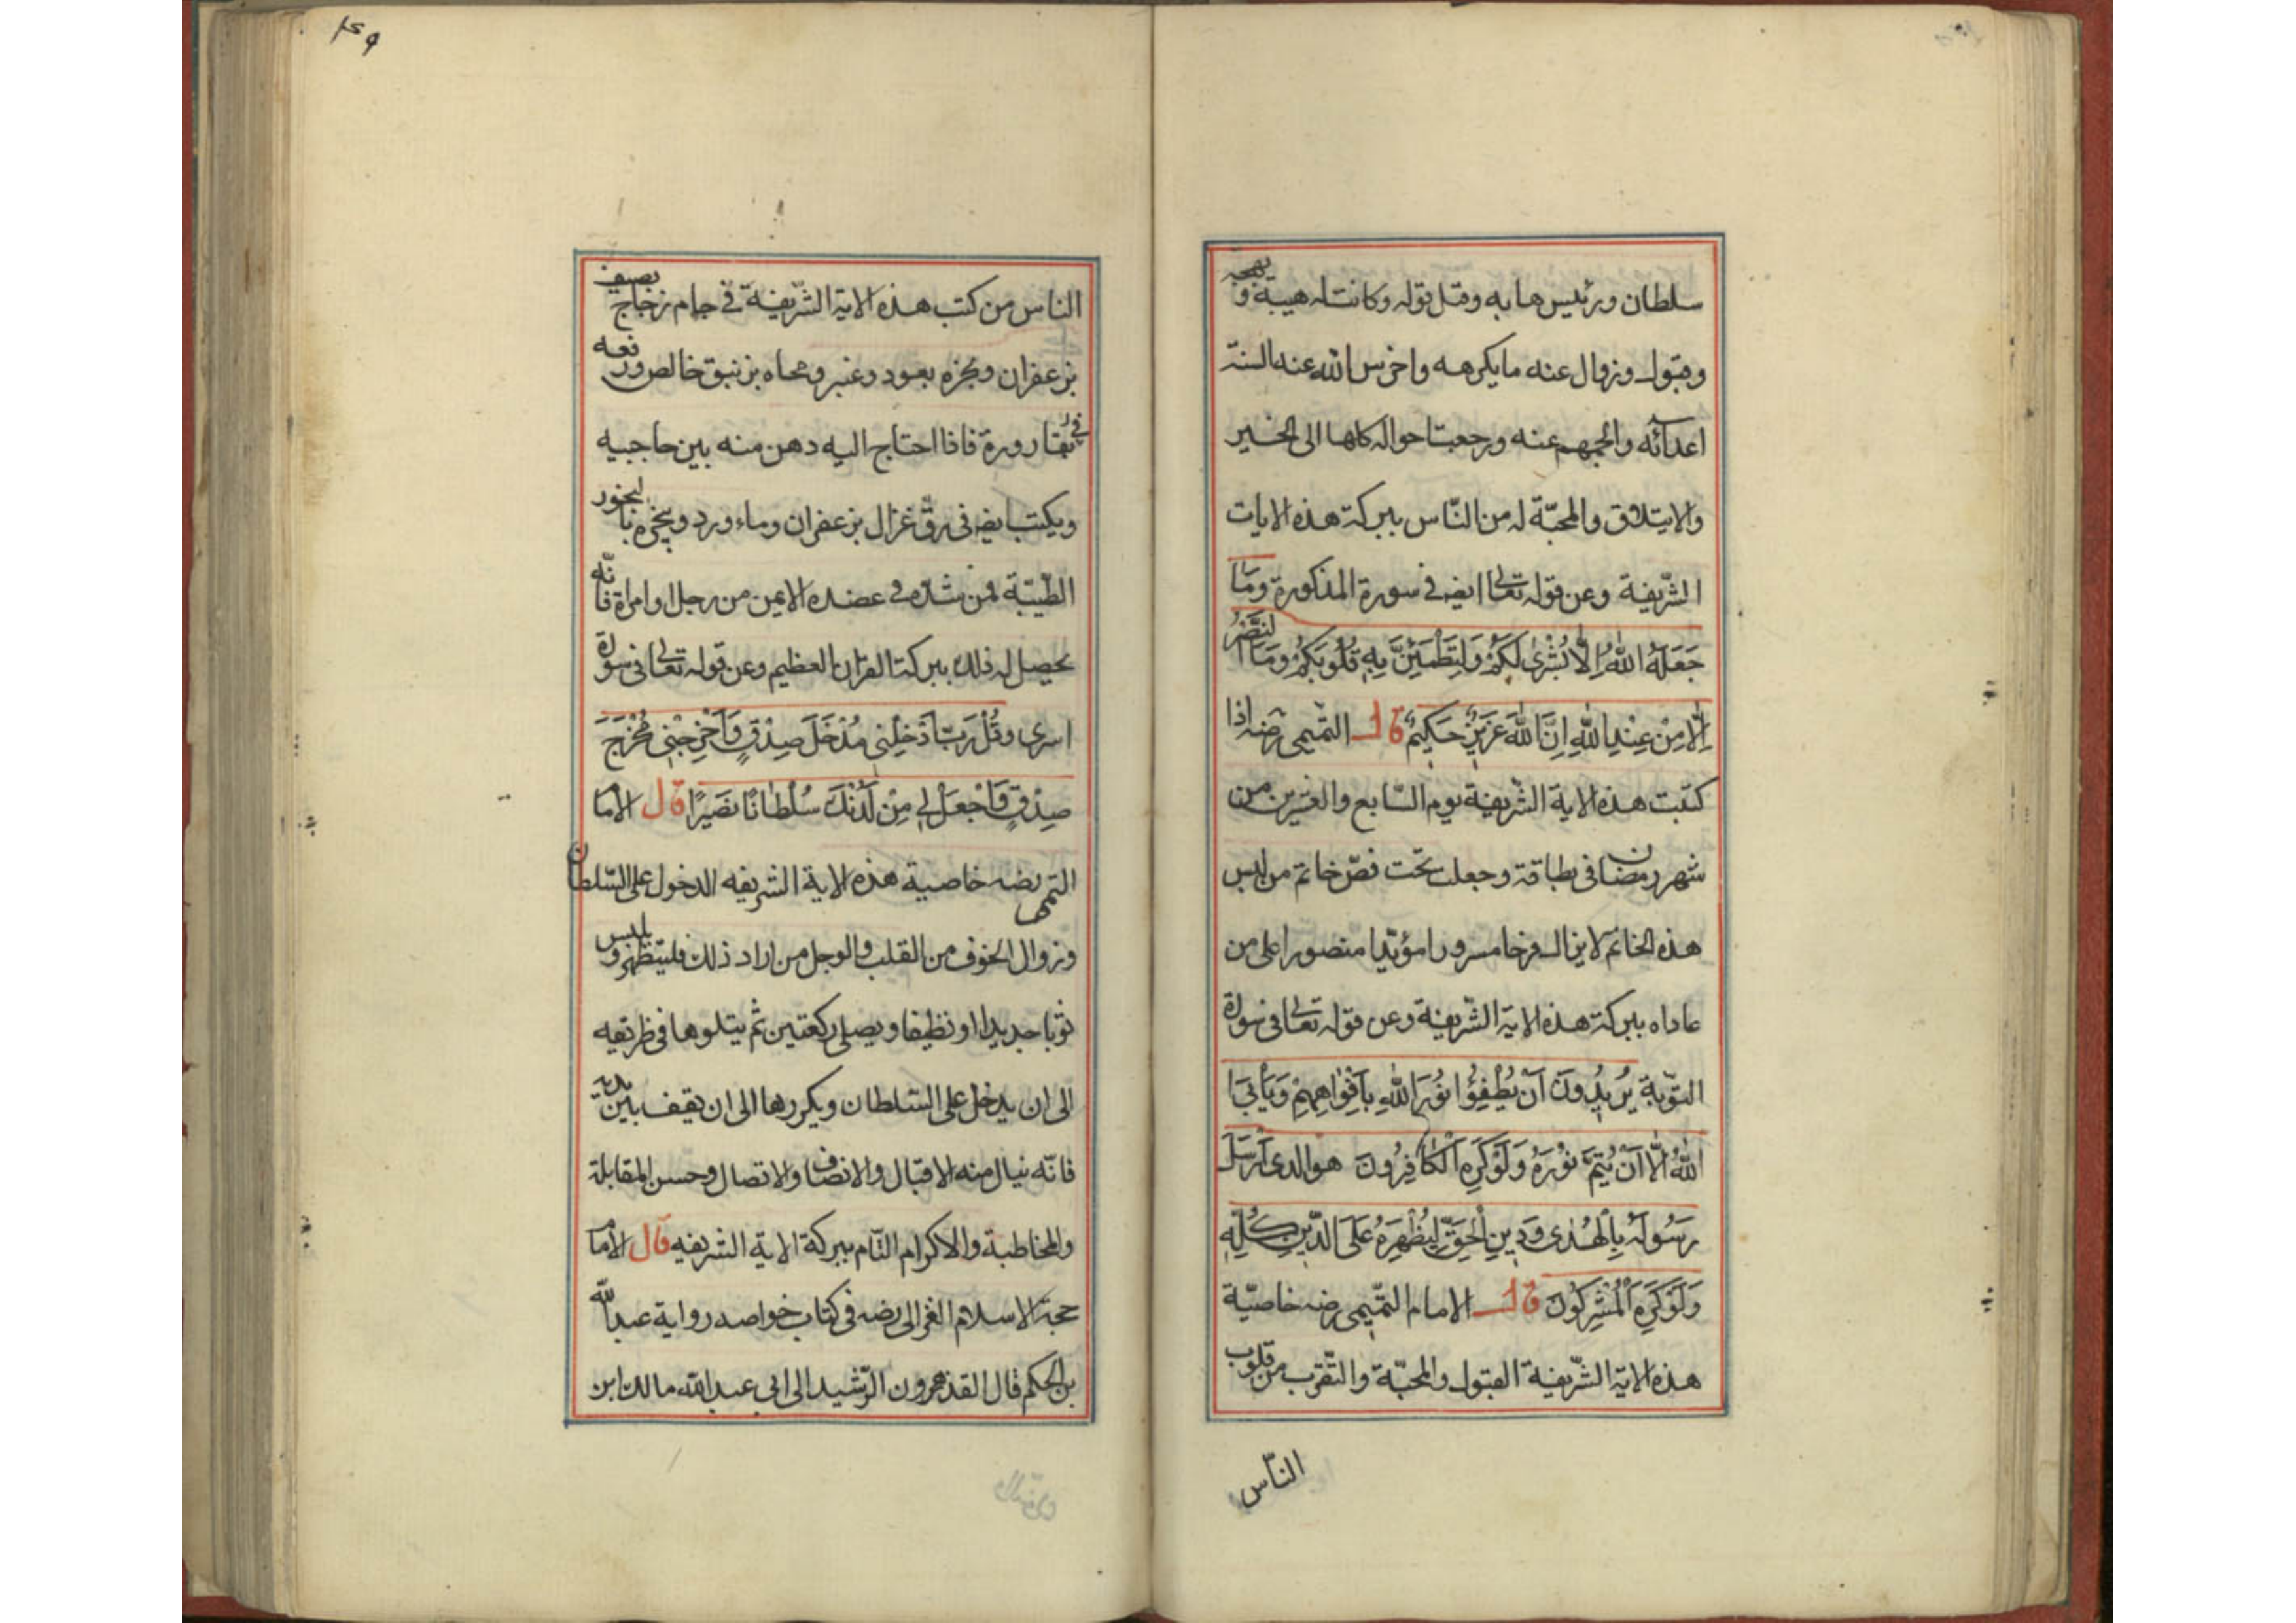 سلطان ورئيس هابه وقبل قوله وكانت له هيبة وبهجة
وقبول وزوال عنه ما يكرهه واخرس الله عنه السنة
اعدائه والجمهم عنه ورجعت احواله كلها الى الخير
والايتلاف والمحبّة له من النّاس ببركة هذه الايات
الشّريفة وعن قوله تعالى ايضه فى سورة المذكورة وَمَا
جَعَلَهُ اللهُ اِلَّا بُشْرٰى لَكُمْ وَلِتَطْمَئِنَّ بِهِ قُلُوبُكُمْ وَمَا النَّصْرُ
اِلَّا مِنْ عِنْدِ اللهِ اِنَّ اللهَ عَزِيزٌ حَكِيمٌ قال التميمى رضه اذا
كتبت هذه الاية الشّريفة يوم السّابع والعشرين من
شهر رمضان فى بطاقة وجعلت تحت فصّ خاتم من لبس
هذه الخاتم لا يزال فرحا مسرورا مؤيّدا منصورا على من
عاداه ببركة هذه الاية الشّريفة وعن قوله تعالى فى سورة
التّوبة يُرِيدُونَ اَنْ يُطْفِؤُا نُورَ اللهِ بِاَفْوَاهِهِمْ وَيَاْبَى
اللهُ اِلَّا اَنْ يُتِمَّ نُورَهُ وَلَوْ كَرِهَ الْكَافِرُونَ هو الذى اَرْسَلَ
رَسُولَهُ بِالْهُدٰى وَدِينِ الْحَقِّ لِيُظْهِرَهُ عَلَى الدِّينِ كُلِّهِ
وَلَوْ كَرِهَ الْمُشْرِكُونَ قال الامام التّميمى رضه خاصيّة
هذه الاية الشّريفة القبول والمحبّة والتّقرب من قلوب
النّاس
٢٥٩
الناس من كتب هذه الاية الشّريفة فى جام زجاج
بزعفران وبخره بعود وعنبر ومحاه بزنبق خالص ورفعه
فى قارورة فاذا احتاج اليه دهن منه بين حاجبيه
ويكتب ايضه فى رقّ غزال بزعفران وماء ورد ويبخره بالبخور
الطّيّبة فمن شدّه فى عضده الايمن من رجل او امراة فانّه
يحصل له ذلك ببركة القران العظيم وعن قوله تعالى فى سورة
اسرى وقُلْ رَبِّ اَدْخِلْنِى مُدْخَلَ صِدْقٍ وَاَخْرِجْنِى مُخْرَجَ
صِدْقٍ وَاجْعَلْ لِى مِنْ لَدُنْكَ سُلْطَانًا نَصِيرًا قال الامام
التميمى رضه خاصية هذه الاية الشريفه الدخول على السّلطان
وزوال الخوف من القلب والوجل من اراد ذلك فليتطهر ويلبس
ثوبا جديدا او نظيفا ويصلى ركعتين ثم يتلوها فى طريقه
الى ان يدخل على السّلطان ويكررها الى ان يقف بين يديه
فانّه ينال منه الاقبال والانصاف والاتصال وحسن المقابلة
والمخاطبة والاكرام التّام ببركة الاية الشريفه قال الامام
حجة الاسلام الغزالى رضه فى كتاب خواصه رواية عبد الله
بن الحكم قال انفذ هرون الرّشيد الى ابى عبد الله مالك ابن